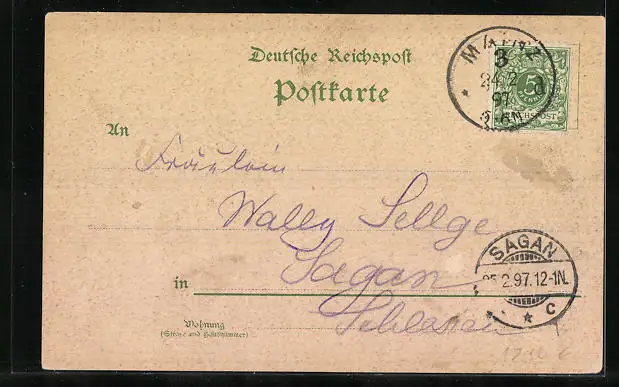 Deutsche Reichspost
Postkarte
MAINZ
3
24 2
97
5-6N.
d
5
REICHSPOST
An
Fräulein
Wally Sellge
in Sagan
Schlesien
SAGAN
25.2.97.12-1N.
c
Wohnung
(Straße und Hausnummer)